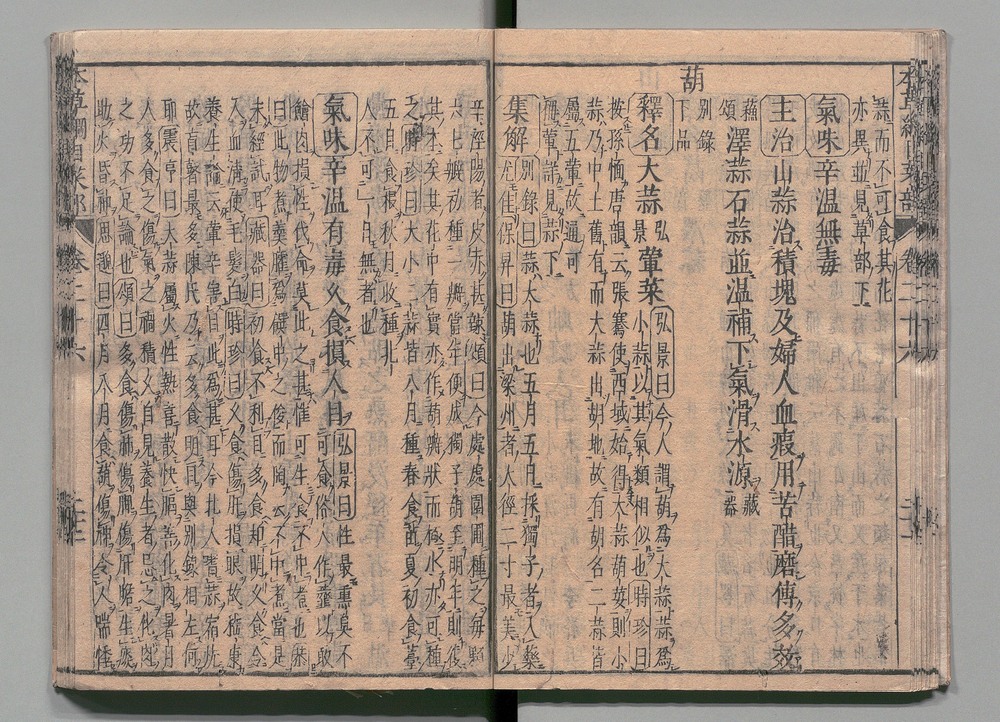 蒜而不可食其花
亦異並見草部下
氣味辛溫無毒
主治山蒜治積塊及婦人血瘕用苦醋磨傅多效
蘓頌澤蒜石蒜並溫補下氣滑水源藏器
葫別錄下品
釋名大蒜弘景葷菜弘景曰今人謂葫爲大蒜蒜爲
小蒜以其氣類相似也時珍曰
按孫愐唐韻云張騫使西域始得大蒜葫荽則小
蒜乃中土舊有而大蒜出胡地故有胡名二蒜皆
屬五葷故通可
稱葷詳見蒜下
集解別錄曰蒜大蒜也五月五日採獨子者入藥
尤佳保昇曰葫出梁州者大徑二寸最美少
辛涇陽者皮赤甚辣頌曰今處處園圃種之每顆
六七瓣初種一瓣當年便成獨子葫至明年則復
其本矣其花中有實亦作葫瓣狀而極小亦可種
之時珍曰大小二蒜皆八月種春食苗夏初食薹
五月食根秋月收種北
人不可一日無者也
氣味辛溫有毒久食損人目弘景曰性最熏臭不
可食俗人作虀以啖
鱠肉損性伐命莫此之甚惟可生食不中煮也恭
曰此物煮爲羹臛爲饌中之俊而陶云不中煮當是
未經試耳藏器曰初食不利目多食却明久食令
人血清使毛髮白時珍曰久食傷肝損眼故嵇康
養生論云葷辛害目此爲甚耳今北人嗜蒜宿炕
故盲瞽最多陳氏乃云多食明目與別錄相左何
耶震亨曰大蒜屬火性熱喜散快膈善化肉暑月
人多食之傷氣之禍積久自見養生者忌之化肉
之功不足論也頌曰多食傷肺傷脾傷肝膽生痰
助火昏神思邈曰四月八月食葫傷神令人喘悸